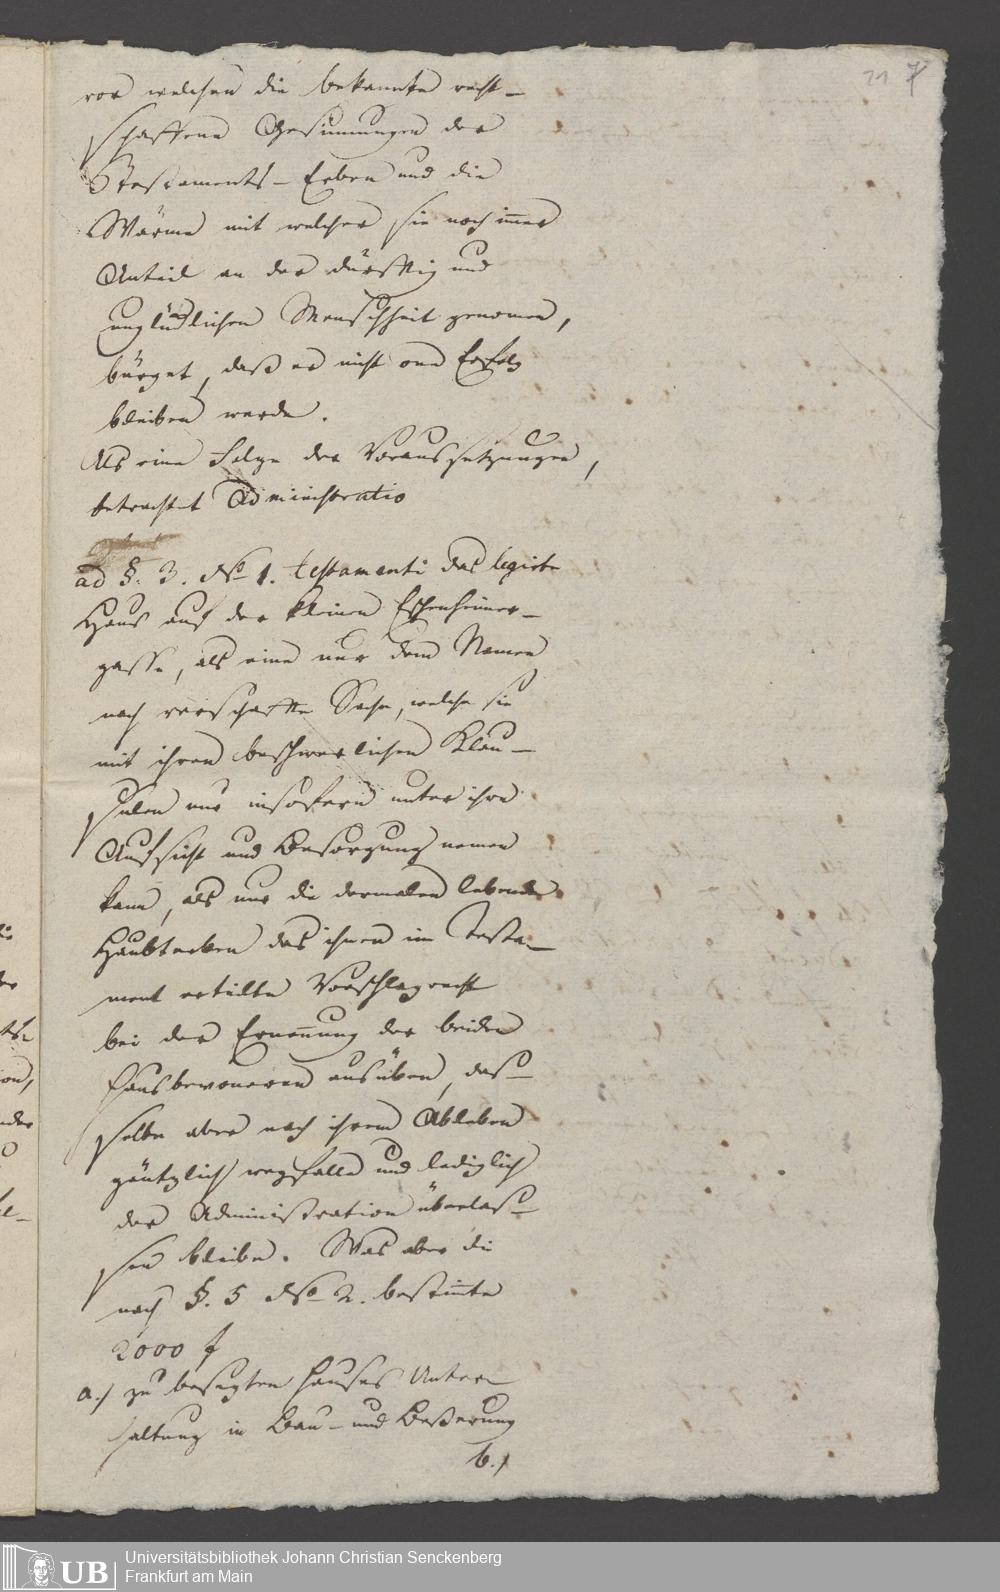 21 7
vor welchen die bekannte recht-
schaffene Gesinnungen der
Testaments-Erben und die
Wärme mit welcher sie noch im̄er
Anteil an der dürfftig und
unglüklichen Menschheit genomen,
bürget, daß er nicht one Erfolg
bleiben werde.
Als eine Folge der Voraussetzungen,
betrachtet Administratio
ad §. 3. No 1. testamenti das legirte
Haus auf der kleinen Eschenheimer-
gasse, als eine nur dem Namen
nach verschaffte Sache, welche sie
mit ihren beschwerlichen Klau-
suln nur insofern unter ihre
Aufsicht und Besorgung nemen
kann, als nur die dermalen lebende
Haubterben das ihnen im Testa-
ment erteilte Vorschlagrecht
bei der Ernen̄ung der beiden
Hausbewoneren ausüben, das-
selbe aber nach ihrem Ableben
gäntzlich wegfalle und lediglich
der Administration überlas-
sen bleibe. Was aber die
nach §. 5 No 2. bestim̄te
2000 f
a.) zu besagten Hauses Unter-
haltung in Bau- und Beßerung
b.)
UB
Universitätsbibliothek Johann Christian Senckenberg
Frankfurt am Main